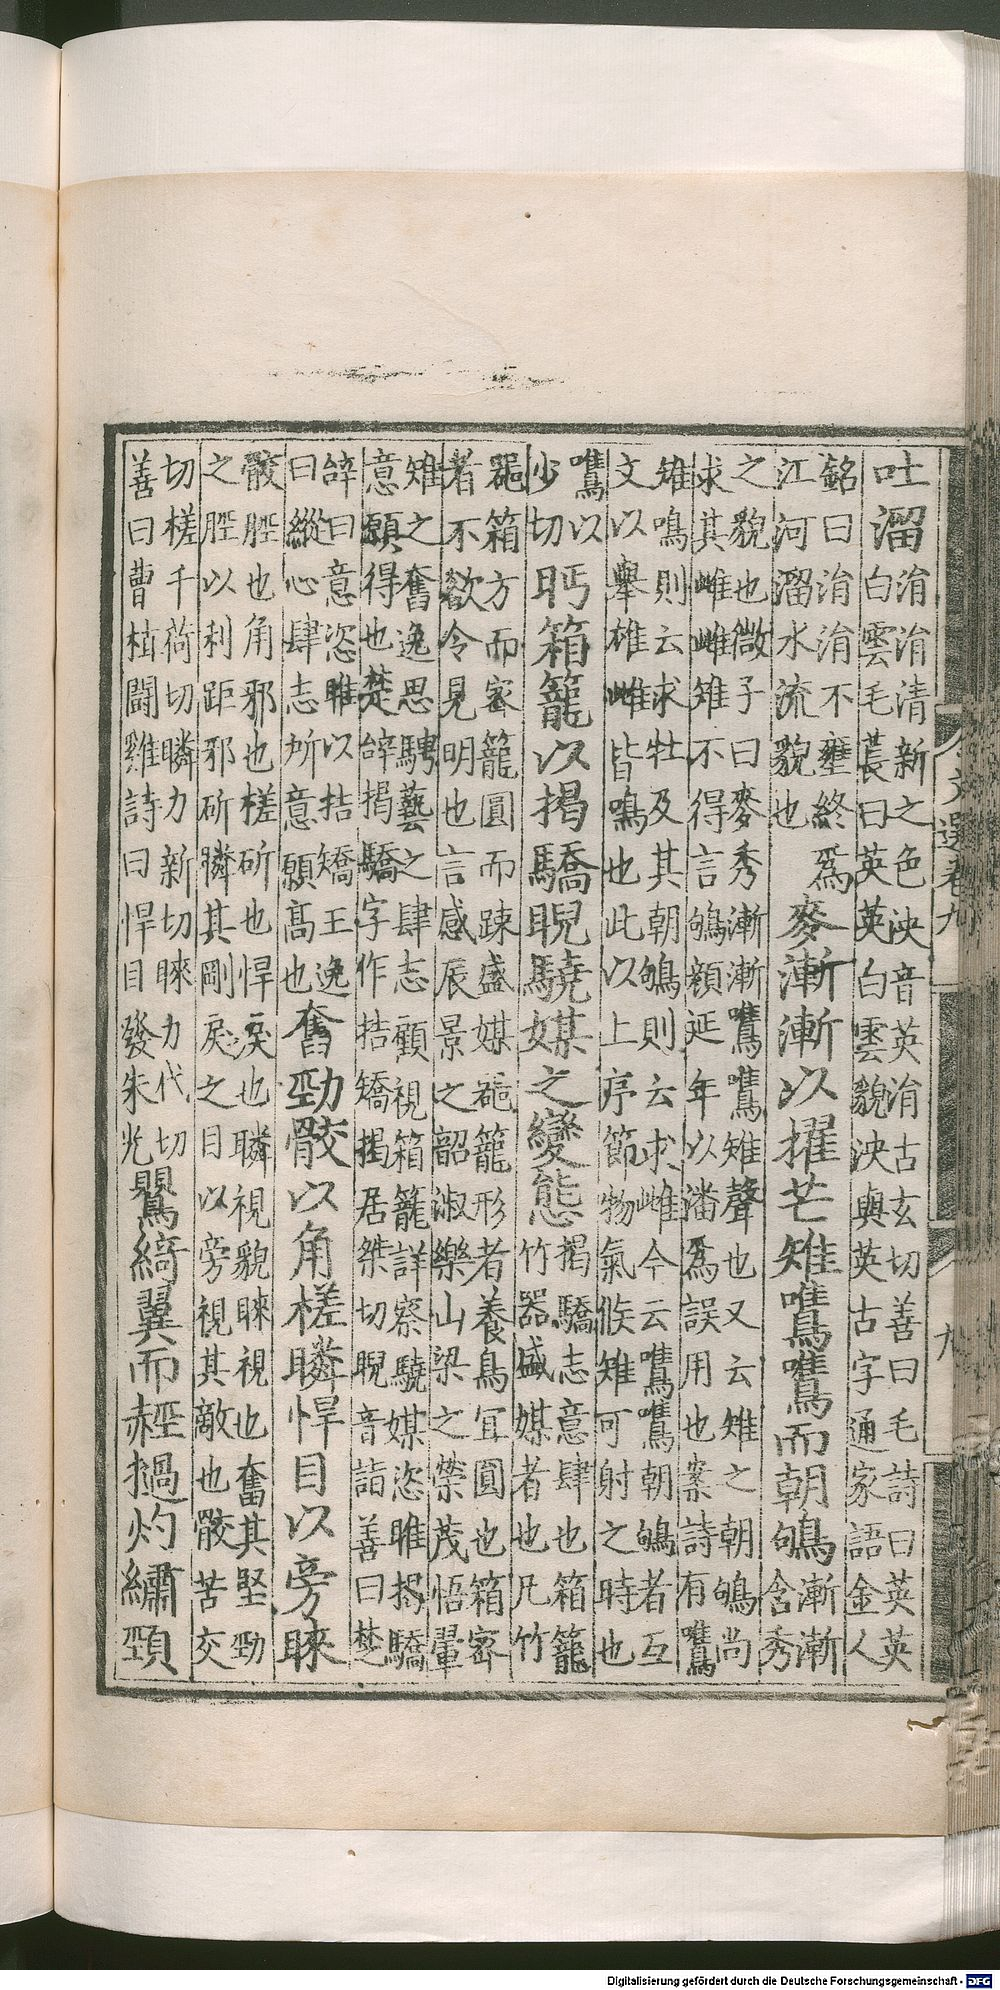 吐溜
涓涓清新之色泱音英涓古玄切善曰毛詩曰英英
白雲毛萇曰英英白雲貌泱與英古字通家語金人
銘曰涓涓不壅終爲
江河溜水流貌也
麥漸漸以擢芒雉鷕鷕而朝鴝
漸漸
含秀
之貌也微子曰麥秀漸漸鷕鷕雉聲也又云雉之朝鴝尚
求其雌雌雉不得言鴝顏延年以潘爲誤用也案詩有鷕
雉鳴則云求牡及其朝鴝則云求雌今云鷕鷕朝鴝者互
文以舉雄雌皆鳴也此以上序節物氣候雉可射之時也
鷕以
少切
眄箱籠以揭驕睨驍媒之變態
揭驕志意肆也箱籠
竹器盛媒者也凡竹
噐箱方而密籠圓而踈盛媒噐籠形者養鳥宜圓也箱密
者不欲令見明也言感辰景之韶淑樂山梁之榮茂悟翬
雉之奮逸思騁藝之肆志顧視箱籠詳察驍媒恣睢揭驕
意願得也楚辝揭驕字作拮矯揭居桀切睨音詣善曰楚
辝曰意恣睢以拮矯王逸
曰縱心肆志所意願髙也
奮勁骹以角槎瞵悍目以旁睞
骹脛也角邪也槎斫也悍戾也瞵視貌睞視也奮其堅勁
之脛以利距邪斫瞵其剛戾之目以旁視其敵也骹苦交
切槎千荷切瞵力新切睞力代切
善曰曹植鬪雞詩曰悍目發朱光
鸎綺翼而䞓撾灼繡頸
文選卷九
九
Digitalisierung gefördert durch die Deutsche Forschungsgemeinschaft - DFG